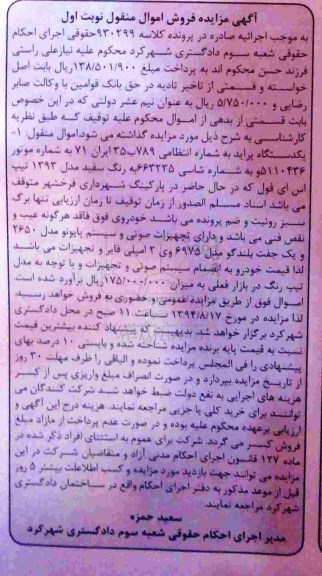 آگهی مزایده فروش اموال منقول نوبت اول
به موجب اجرائیه صادره در پرونده کلاسه ۹۳۰۲۹۹حقوقی اجرای احکام
حقوقی شعبه سوم دادگستری شهرکرد محکوم علیه نیازعلی راستی
فرزند حسن محکوم اند به پرداخت مبلغ ۱۳۸/۵۰۱/۹۰۰ریال بابت اصل
خواسته و قسمتی از تاخیر تادیه در حق بانک قوامین با وکالت صابر
رضایی و ۵/۷۵۰/۰۰۰ ریال به عنوان نیم عشر دولتی که در این خصوص
بابت قسمتی از بدهی از اموال محکوم علیه توقیف که طبق نظریه
کارشناسی به شرح ذیل مورد مزایده گذاشته می شود:اموال منقول: ۱-
یکدستگاه پراید به شماره انتظامی ۷۸۹ب۳۵ ایران ۷۱ به شماره موتور
۵۱۱۰۴۳۶و به شماره شاسی ۶۶۳۲۳۵به رنگ سفید مدل ۱۳۹۳ تیپ
اس ای فول که در حال حاضر در پارکینگ شهرداری فرخشهر متوقف
می باشد اسناد مسلم الصدور از زمان توقیف تا زمان ارزیابی تنها برگ
سبز رویت و ضم پرونده می باشد خودروی فوق فاقد هرگونه عیب و
نقص فنی می باشد و دارای تجهیزات صوتی و سیستم پایونو مدل ۲۶۵۰
و یک جفت بلندگو مدل ۶۹۷۵ وی ۲ امپلی فایر و تجهیزات می باشد
لذا قیمت خودرو به انضمام سیستم صوتی و تجهیزات و با توجه به مدل
تیپ رنگ در بازار فعلی به میزان ۱۷۵/۰۰۰/۰۰۰ریال برآورد شده است.
اموال فوق از طریق مزایده عمومی و حضوری به فروش خواهد رسید.
لذا مزایده در مورخ ۱۳۹۴/۸/۱۷ ساعت ۱۱ صبح در محل دادگستری
شهرکرد برگزار خواهد شد. بدیهیست که پیشنهاد کننده بیشترین قیمت
نسبت به قیمت پایه برنده مزایده شناخته شده و بایستی ۱۰ درصد بهای
پیشنهادی را فی المجلس پرداخت نموده و الباقی را ظرف مهلت ۳۰ روز
از تاریخ مزایده بپردازد و در صورت انصراف مبلغ واریزی پس از کسر
هزینه های اجرایی به نفع دولت ضبط خواهد شد شرکت کنندگان می
توانند برای خرید کلی یا جزیی مراجعه نمایند. هزینه درج این آگهی و
ارزیابی برعهده محکوم علیه بوده و در صورت عدم پرداخت از مازاد مبلغ
فروش کسر می گردد. شرکت برای عموم به استثنای افراد ذکر شده در
ماده ۱۲۷ قانون اجرای احکام مدنی آزاد و متقاضیان شرکت در این
مزایده می توانند جهت بازدید مورد مزایده و کسب اطلاعات بیشتر ۵ روز
قبل از موعد مذکور به دفتر اجرای احکام واقع در ساختمان دادگستری
شهرکرد مراجعه نمایند.
سعید حمزه
مدیر اجرای احکام حقوقی شعبه سوم دادگستری شهرکرد